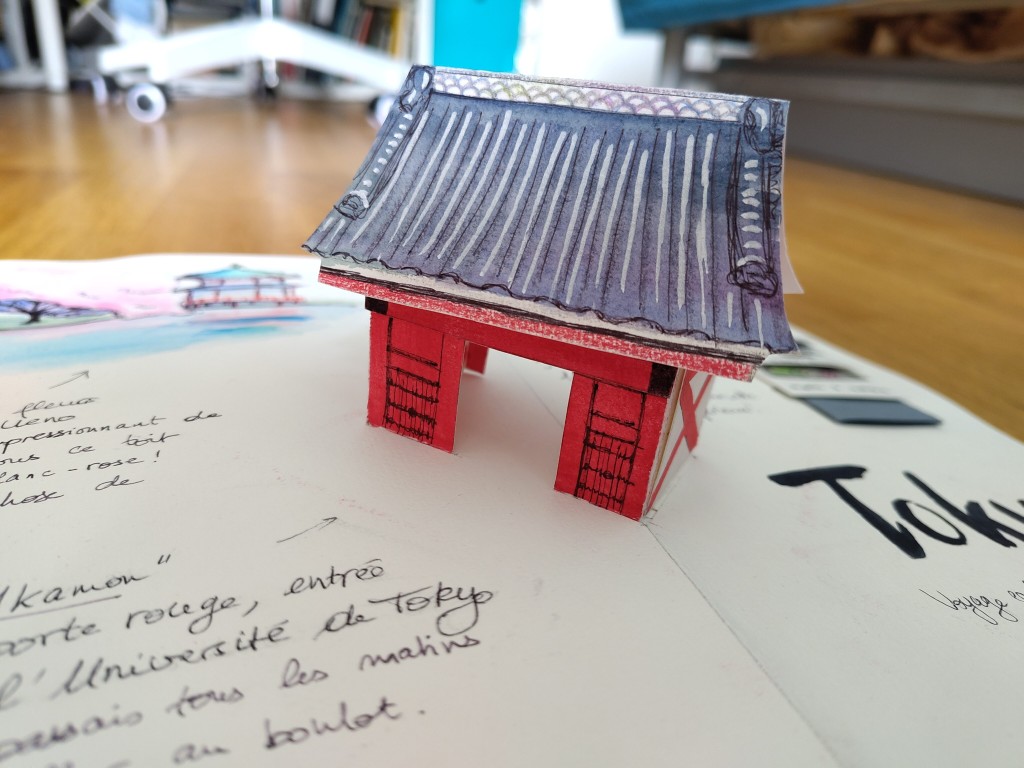 fleurs
Ueno
mpressionnant de
ous ce toit
lanc-rose!
hose de
Akamon"
porte rouge, entrée
l'Université de Tokyo
passais tous les matins
au boulot.
Toky
Voyage